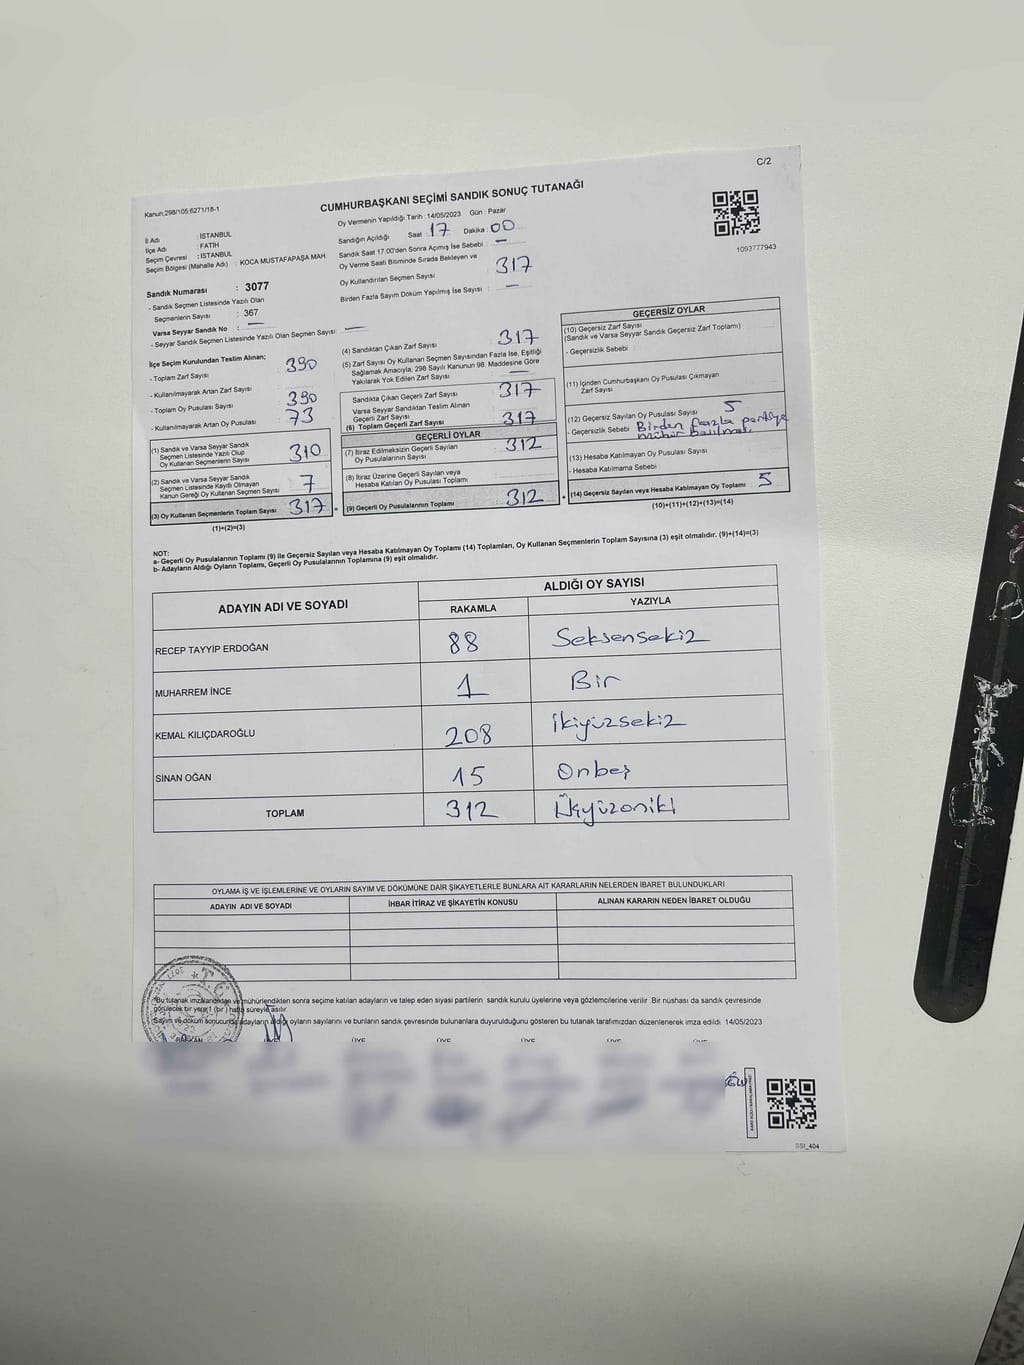 C/2
CUMHURBAŞKANI SEÇİMİ SANDIK SONUÇ TUTANAĞI
Kanun;298/105;6271/18-1
Oy Vermenin Yapıldığı Tarih : 14/05/2023 Gün : Pazar
Sandığın Açıldığı Saat : 17 Dakika : 00
Sandık Saat 17.00'den Sonra Açımış İse Sebebi : —
Oy Verme Saati Bitiminde Sırada Bekleyen ve
Oy Kullandırılan Seçmen Sayısı : 317
Birden Fazla Sayım Döküm Yapılmış İse Sayısı : —
1093777943
İl Adı : İSTANBUL
İlçe Adı : FATİH
Seçim Çevresi : İSTANBUL
Seçim Bölgesi (Mahalle Adı) : KOCA MUSTAFAPAŞA MAH.
Sandık Numarası : 3077
- Sandık Seçmen Listesinde Yazılı Olan
Seçmenlerin Sayısı : 367
Varsa Seyyar Sandık No : —
- Seyyar Sandık Seçmen Listesinde Yazılı Olan Seçmen Sayısı : —
İlçe Seçim Kurulundan Teslim Alınan;
- Toplam Zarf Sayısı 390
- Kullanılmayarak Artan Zarf Sayısı
- Toplam Oy Pusulası Sayısı 390
- Kullanılmayarak Artan Oy Pusulası 73
(1) Sandık ve Varsa Seyyar Sandık
Seçmen Listesinde Yazılı Olup
Oy Kullanan Seçmenlerin Sayısı 310
(2) Sandık ve Varsa Seyyar Sandık
Seçmen Listesinde Kayıtlı Olmayan
Kanun Gereği Oy Kullanan Seçmen Sayısı 7
(3) Oy Kullanan Seçmenlerin Toplam Sayısı 317
(1)+(2)=(3)
(4) Sandıktan Çıkan Zarf Sayısı 317
(5) Zarf Sayısı Oy Kullanan Seçmen Sayısından Fazla İse, Eşitliği
Sağlamak Amacıyla, 298 Sayılı Kanunun 98. Maddesine Göre
Yakılarak Yok Edilen Zarf Sayısı —
Sandıkta Çıkan Geçerli Zarf Sayısı 317
Varsa Seyyar Sandıktan Teslim Alınan
Geçerli Zarf Sayısı
(6) Toplam Geçerli Zarf Sayısı 317
GEÇERLİ OYLAR
(7) İtiraz Edilmeksizin Geçerli Sayılan
Oy Pusulalarının Sayısı 312
(8) İtiraz Üzerine Geçerli Sayılan veya
Hesaba Katılan Oy Pusulaları Toplamı
(9) Geçerli Oy Pusulalarının Toplamı 312
GEÇERSİZ OYLAR
(10) Geçersiz Zarf Sayısı
(Sandık ve Varsa Seyyar Sandık Geçersiz Zarf Toplamı)
- Geçersizlik Sebebi
(11) İçinden Cumhurbaşkanı Oy Pusulası Çıkmayan
Zarf Sayısı
(12) Geçersiz Sayılan Oy Pusulası Sayısı 5
- Geçersizlik Sebebi Birden fazla partiye
mühür
(13) Hesaba Katılmayan Oy Pusulası Sayısı
- Hesaba Katılmama Sebebi
(14) Geçersiz Sayılan veya Hesaba Katılmayan Oy Toplamı 5
(10)+(11)+(12)+(13)=(14)
NOT:
a- Geçerli Oy Pusulalarının Toplamı (9) ile Geçersiz Sayılan veya Hesaba Katılmayan Oy Toplamı (14) Toplamları, Oy Kullanan Seçmenlerin Toplam Sayısına (3) eşit olmalıdır. (9)+(14)=(3)
b- Adayların Aldığı Oyların Toplamı, Geçerli Oy Pusulalarının Toplamına (9) eşit olmalıdır.
ADAYIN ADI VE SOYADI ALDIĞI OY SAYISI
RAKAMLA YAZIYLA
RECEP TAYYİP ERDOĞAN 88 Seksensekiz
MUHARREM İNCE 1 Bir
KEMAL KILIÇDAROĞLU 208 İkiyüzsekiz
SİNAN OĞAN 15 Onbeş
TOPLAM 312 Üçyüzoniki
OYLAMA İŞ VE İŞLEMLERİNE VE OYLARIN SAYIM VE DÖKÜMÜNE DAİR ŞİKAYETLERLE BUNLARA AİT KARARLARIN NELERDEN İBARET BULUNDUKLARI
ADAYIN ADI VE SOYADI İHBAR İTİRAZ VE ŞİKAYETİN KONUSU ALINAN KARARIN NEDEN İBARET OLDUĞU
*Bu tutanak imzalandıktan ve mühürlendikten sonra seçime katılan adayların ve talep eden siyasi partilerin sandık kurulu üyelerine veya gözlemcilerine verilir. Bir nüshası da sandık çevresinde
görülecek bir yere 1 (bir) hafta süreyle asılır.
*Sayım ve döküm sonucunda adayların aldığı oyların sayılarını ve bunların sandık çevresinde bulunanlara duyurulduğunu gösteren bu tutanak tarafımızdan düzenlenerek imza edildi. 14/05/2023
BAŞKAN ÜYE ÜYE ÜYE ÜYE ÜYE ÜYE
SSI_404